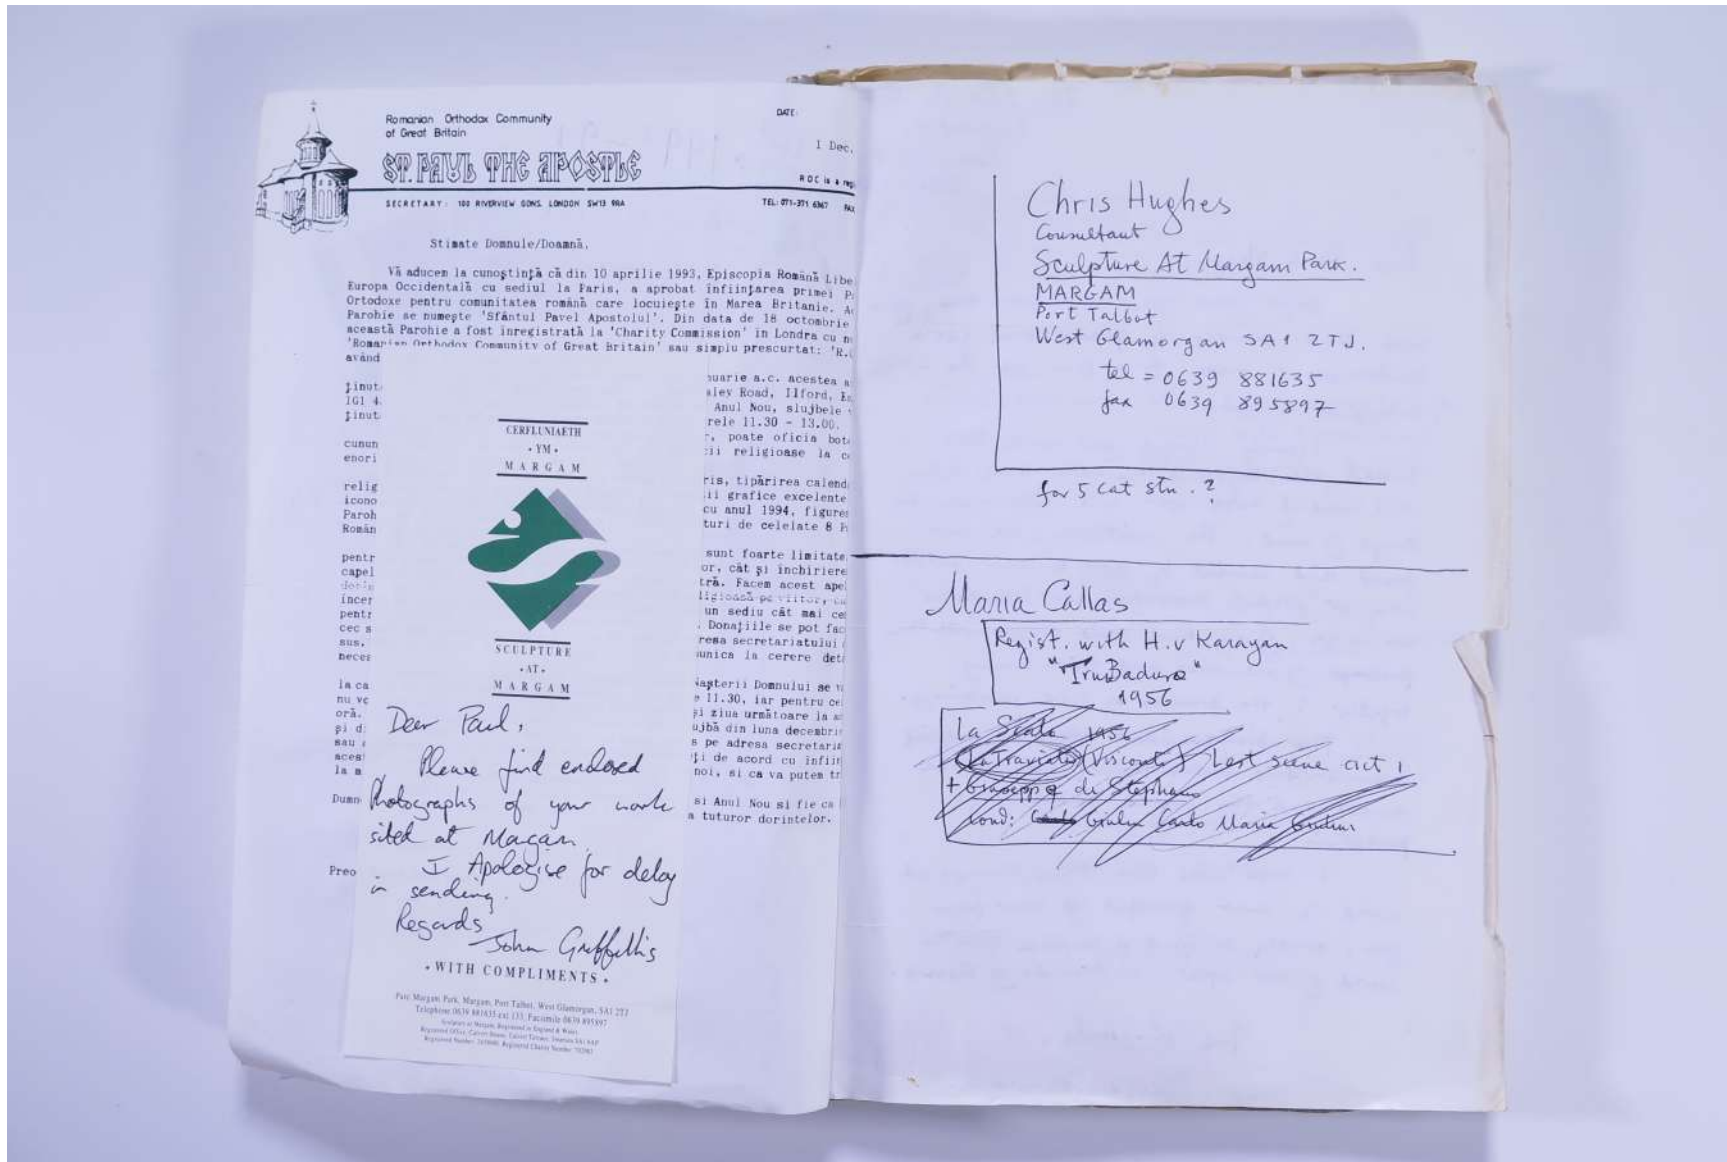 Romanian Orthodox Community
of Great Britain
DATE:
ST. PAUL THE APOSTLE
1 Dec.
ROC is a reg
SECRETARY: 100 RIVERVIEW GDNS. LONDON SW13 9RA
TEL: 071-371 6367 FAX
Stimate Domnule/Doamnă,
Vă aducem la cunoştinţă că din 10 aprilie 1993, Episcopia Română Libe
Europa Occidentală cu sediul la Paris, a aprobat înfiinţarea primei P
Ortodoxe pentru comunitatea română care locuieşte în Marea Britanie. A
Parohie se numeşte 'Sfântul Pavel Apostolul'. Din data de 18 octombrie
această Parohie a fost inregistrată la 'Charity Commission' în Londra cu n
'Romanian Orthodox Community of Great Britain' sau simplu prescurtat: 'R.
având
nuarie a.c. acestea a
ţinut
aley Road, Ilford, Es
IG1 4
Anul Nou, slujbele
ţinut
rele 11.30 - 13.00.
, poate oficia bot
cunun
ii religioase la c
enori
ris, tipărirea calend
relig
ii grafice excelente
icono
cu anul 1994, figures
Paroh
turi de celelate 8 P
Român
sunt foarte limitate
pentr
or, cât şi închiriere
capel
tră. Facem acest apel
ligioasă pe viitor,
incer
un sediu cât mai ce
pentr
. Donaţiile se pot fac
cec s
resa secretariatului
sus.
unica la cerere det
neces
Naşterii Domnului se v
la ca
e 11.30, iar pentru ce
nu vo
şi ziua următoare la a
oră.
ujbă din luna decembrie
şi d
s pe adresa secretaria
sau
ţi de acord cu înfiin
aces
noi, si ca va putem tr
la a
Dumn
si Anul Nou si fie ca
a tuturor dorintelor.
Preo
CERFLUNIAETH
• YM •
MARGAM
SCULPTURE
• AT •
MARGAM
Dear Paul,
Please find enclosed
Photographs of your work
sited at Margam.
I Apologise for delay
in sending.
Regards
John Griffiths
• WITH COMPLIMENTS •
Parc Margam Park, Margam, Port Talbot, West Glamorgan, SA1 2TJ
Telephone 0639 881635 ext 133, Facsimile 0639 895897
Sculpture at Margam, Registered in England & Wales
Chris Hughes
Consultant
Sculpture At Margam Park.
MARGAM
Port Talbot
West Glamorgan SA1 2TJ.
tel = 0639 881635
fax 0639 895897
for 5 cat stn. ?
Maria Callas
Regist. with H. v Karayan
"TruBaduro"
1956
La Scala 1956
La Traviata (Visconti) Last scene act 1
+ Giuseppe di Stephano
Cond: Giulin Carlo Maria Giulini